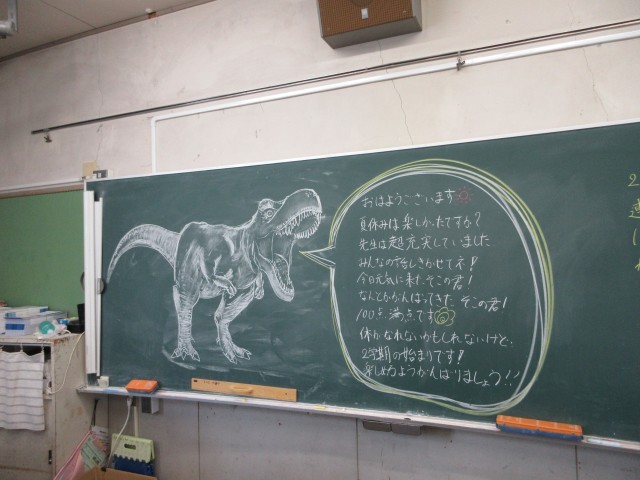 おはようございます
夏休みは楽しかったですか?
先生は超充実していました
みんなの話しきかせてネ!
今日元気に来た、そこの君!
なんとかがんばってきた、そこの君!
100点満点です
体がなれないかもしれないけど、
2学期の始まりです!!
楽しめるようがんばりましょう!!
2